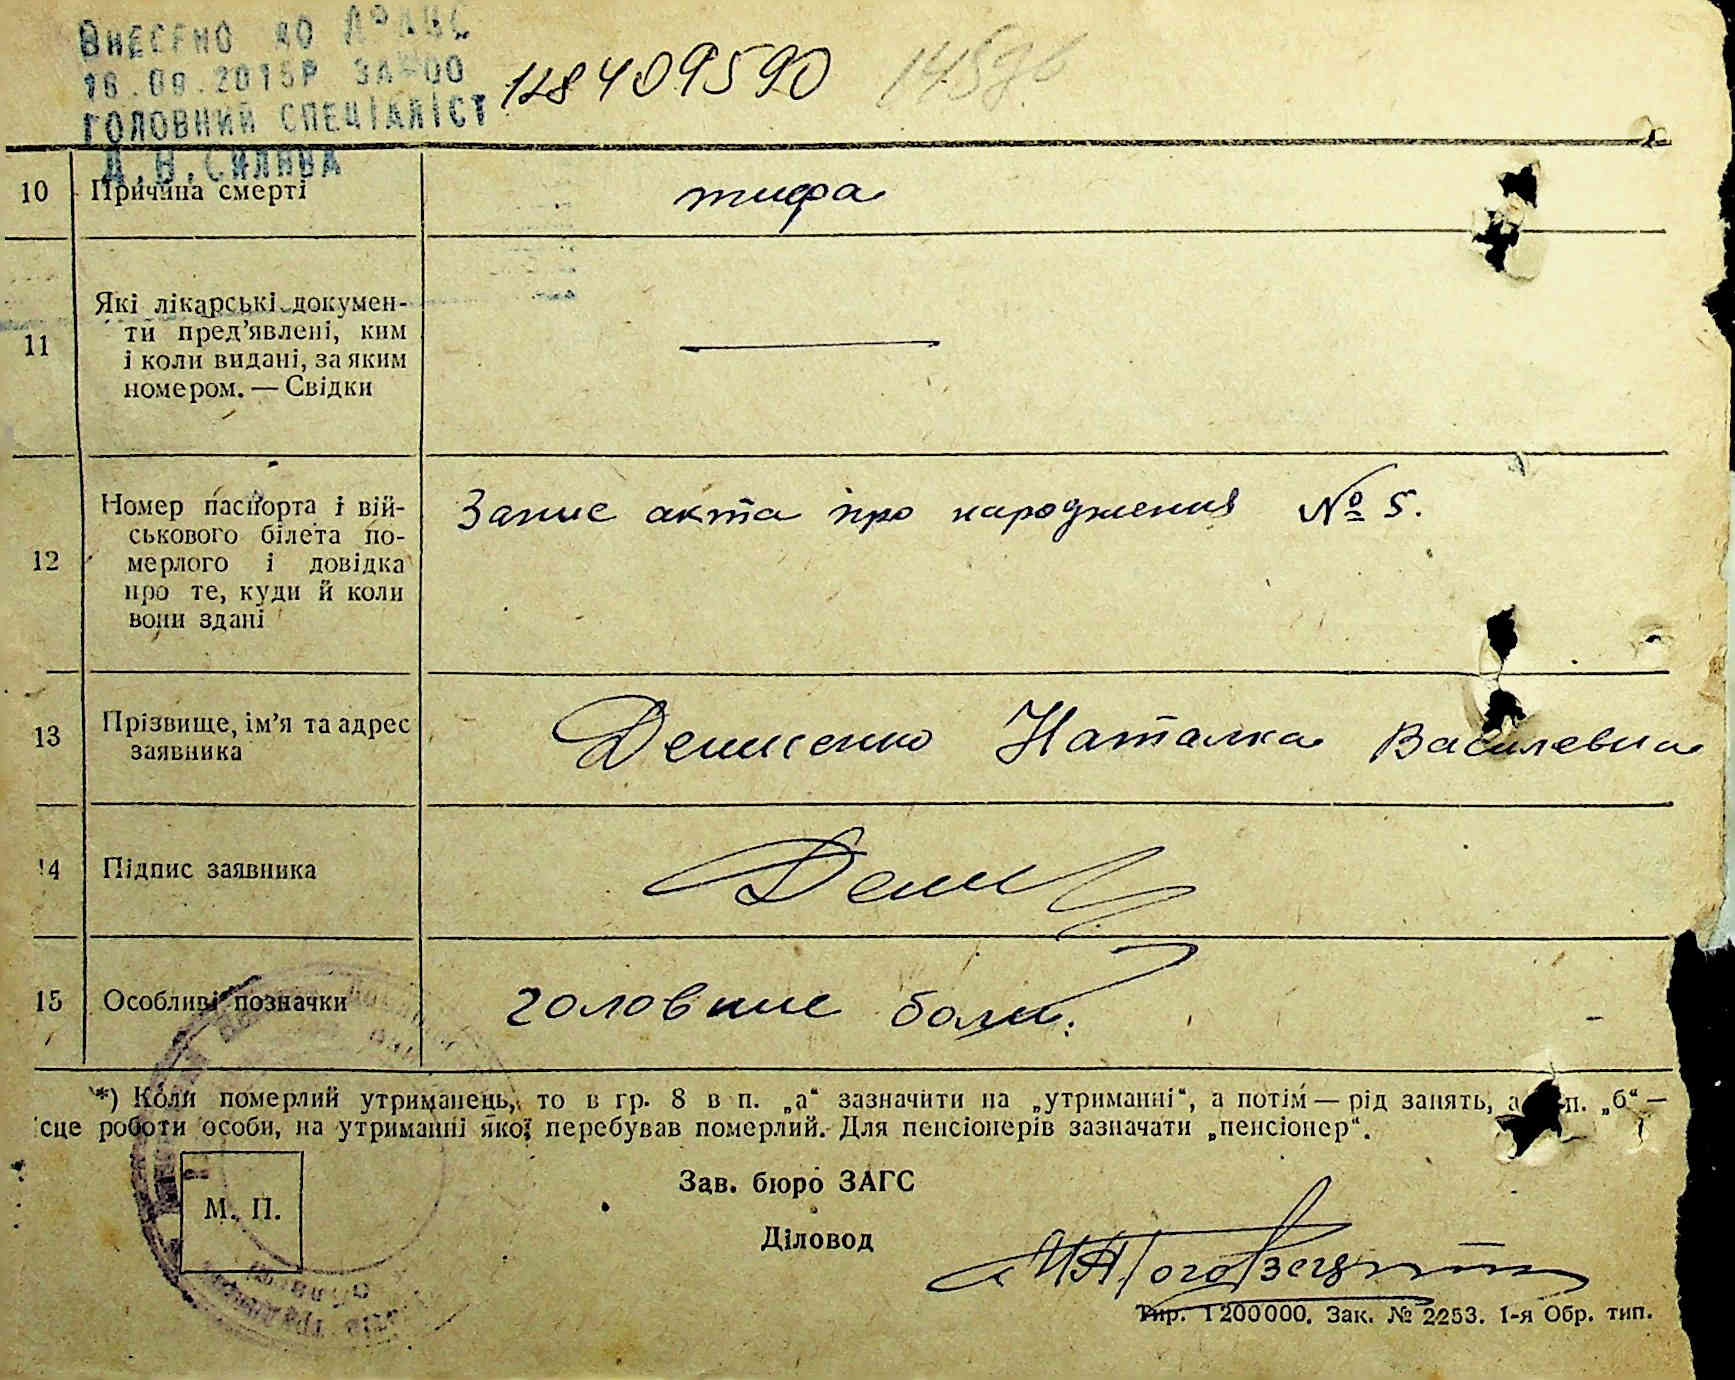 ВНЕСЕНО ДО ДРАЦС
16.09.2015Р. ЗА №00 128409590
ГОЛОВНИЙ СПЕЦІАЛІСТ
10 Причина смерті тифа
11 Які лікарські докумен-
ти пред’явлені, ким
і коли видані, за яким
номером. — Свідки
12 Номер паспорта і вій-
ськового білета по-
мерлого і довідка
про те, куди й коли
вони здані
Запис акта про народження № 5.
13 Прізвище, ім’я та адрес
заявника
Денисенко Наталка Василевна
14 Підпис заявника
15 Особливі позначки головние боли.
*) Коли померлий утриманець, то в гр. 8 в п. „а“ зазначити на „утриманні“, а потім — рід занять, а в п. „б“ —
сце роботи особи, на утриманні якої перебував померлий. Для пенсіонерів зазначати „пенсіонер“.
М. П.
Зав. бюро ЗАГС
Діловод
Тир. 1200000. Зак. № 2253. 1-я Обр. тип.